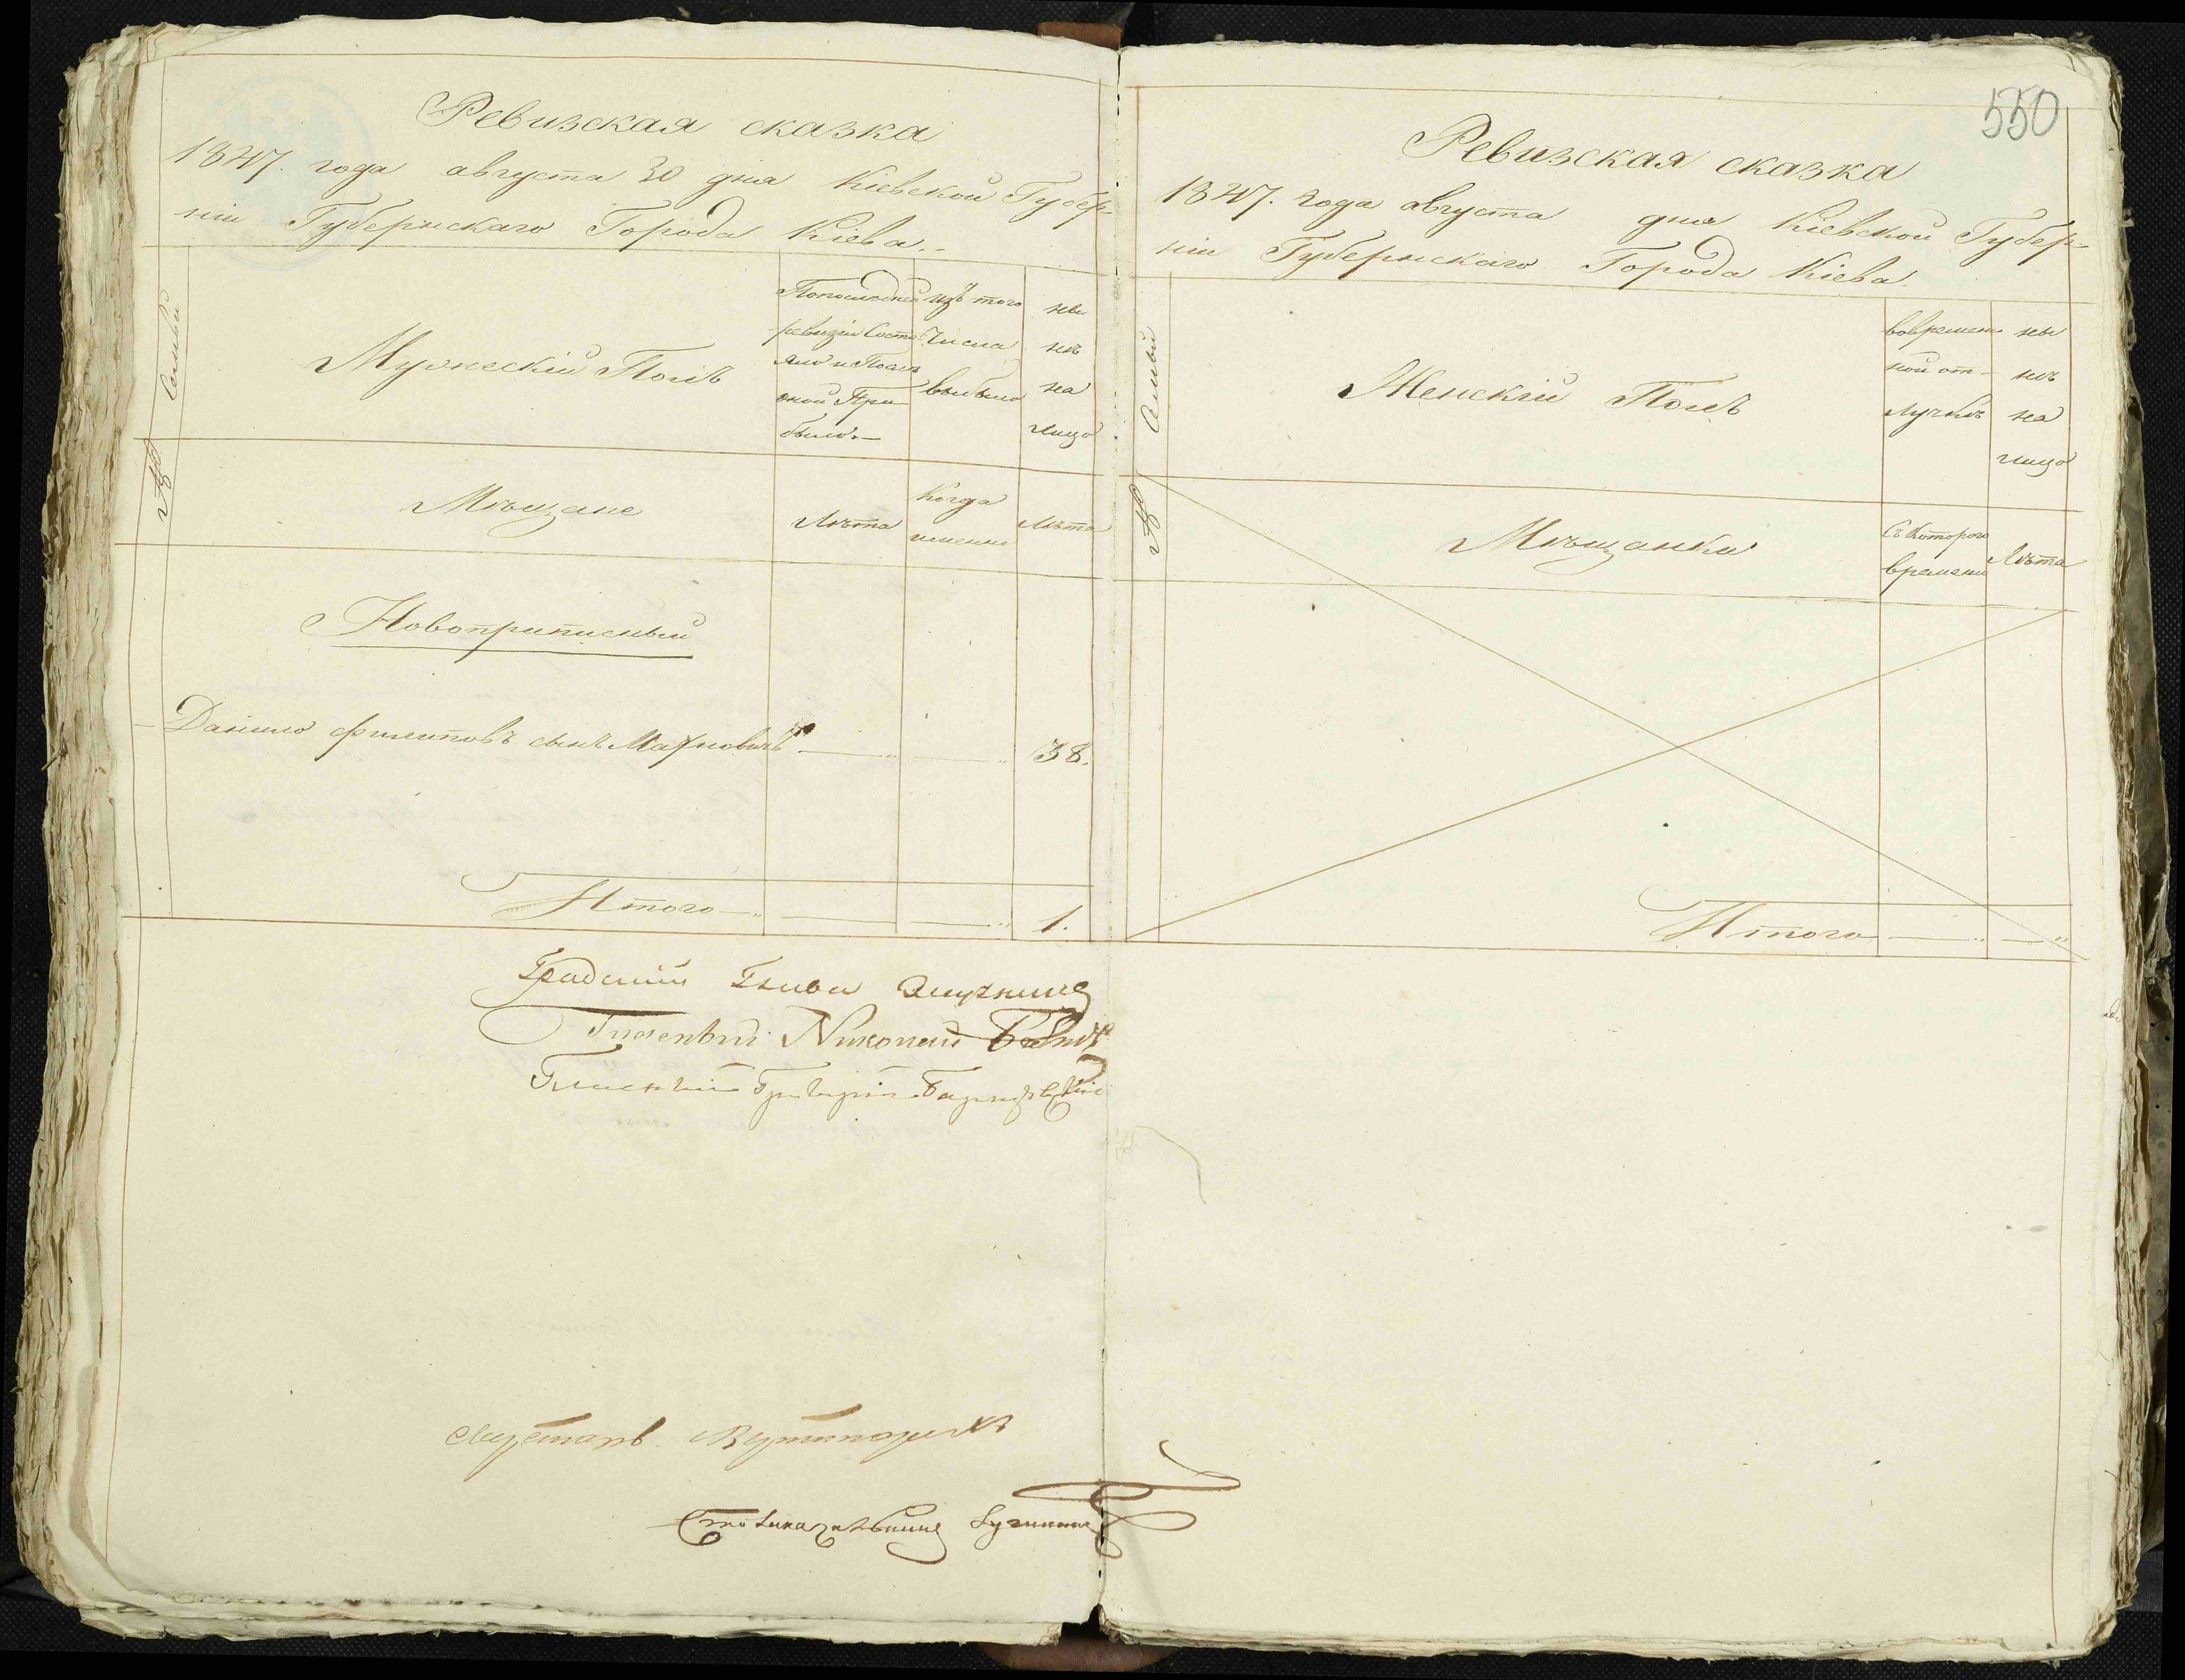 Ревизская сказка
1847. года августа 30 дня Кіевской Губер-
ніи Губернскаго Города Кіева.-
№ Семьи
Мужескій Полъ
Попоследней
ревизіи Состо
яло и После
оной При
было.-
изъ того
Числа
выбыло
ны
нѣ
на
лицо
Мѣщане
Лѣта
Когда
именно
Лѣта
Новоприписный
Данило Филиповъ сынъ Махновичъ 38.
Итого 1.
Градскій Глава
Гласный Николай
Гласный Григорій
550
Ревизская сказка
1847. года августа дня Кіевской Губер-
ніи Губернскаго Города Кіева.
№ Семьи
Женскій Полъ
вовремен
ной от-
лучкѣ
ны
нѣ
на
лицо
Мѣщанки
Съ Котораго
времени
Лѣта
Итого